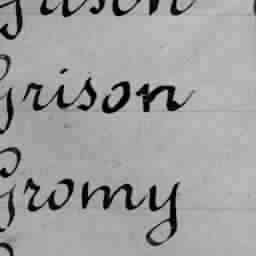 Grison
Gromy